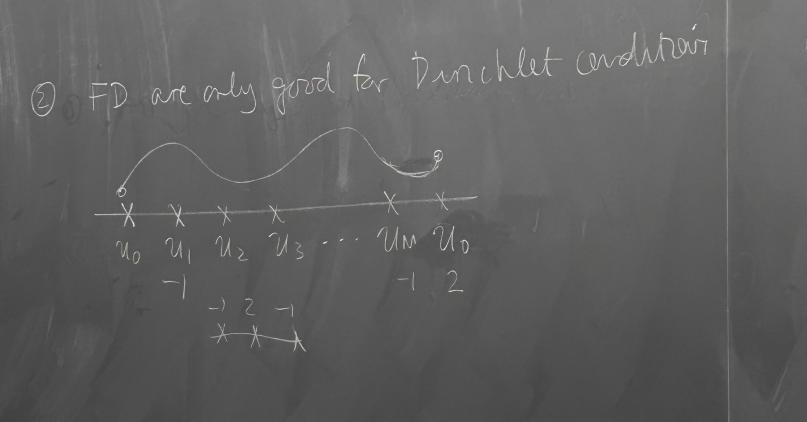 ② FD are only good for Dirichlet condition
u₀ u₁ u₂ u₃ ... u_M u₀
-1 -1 2
-1 2 -1